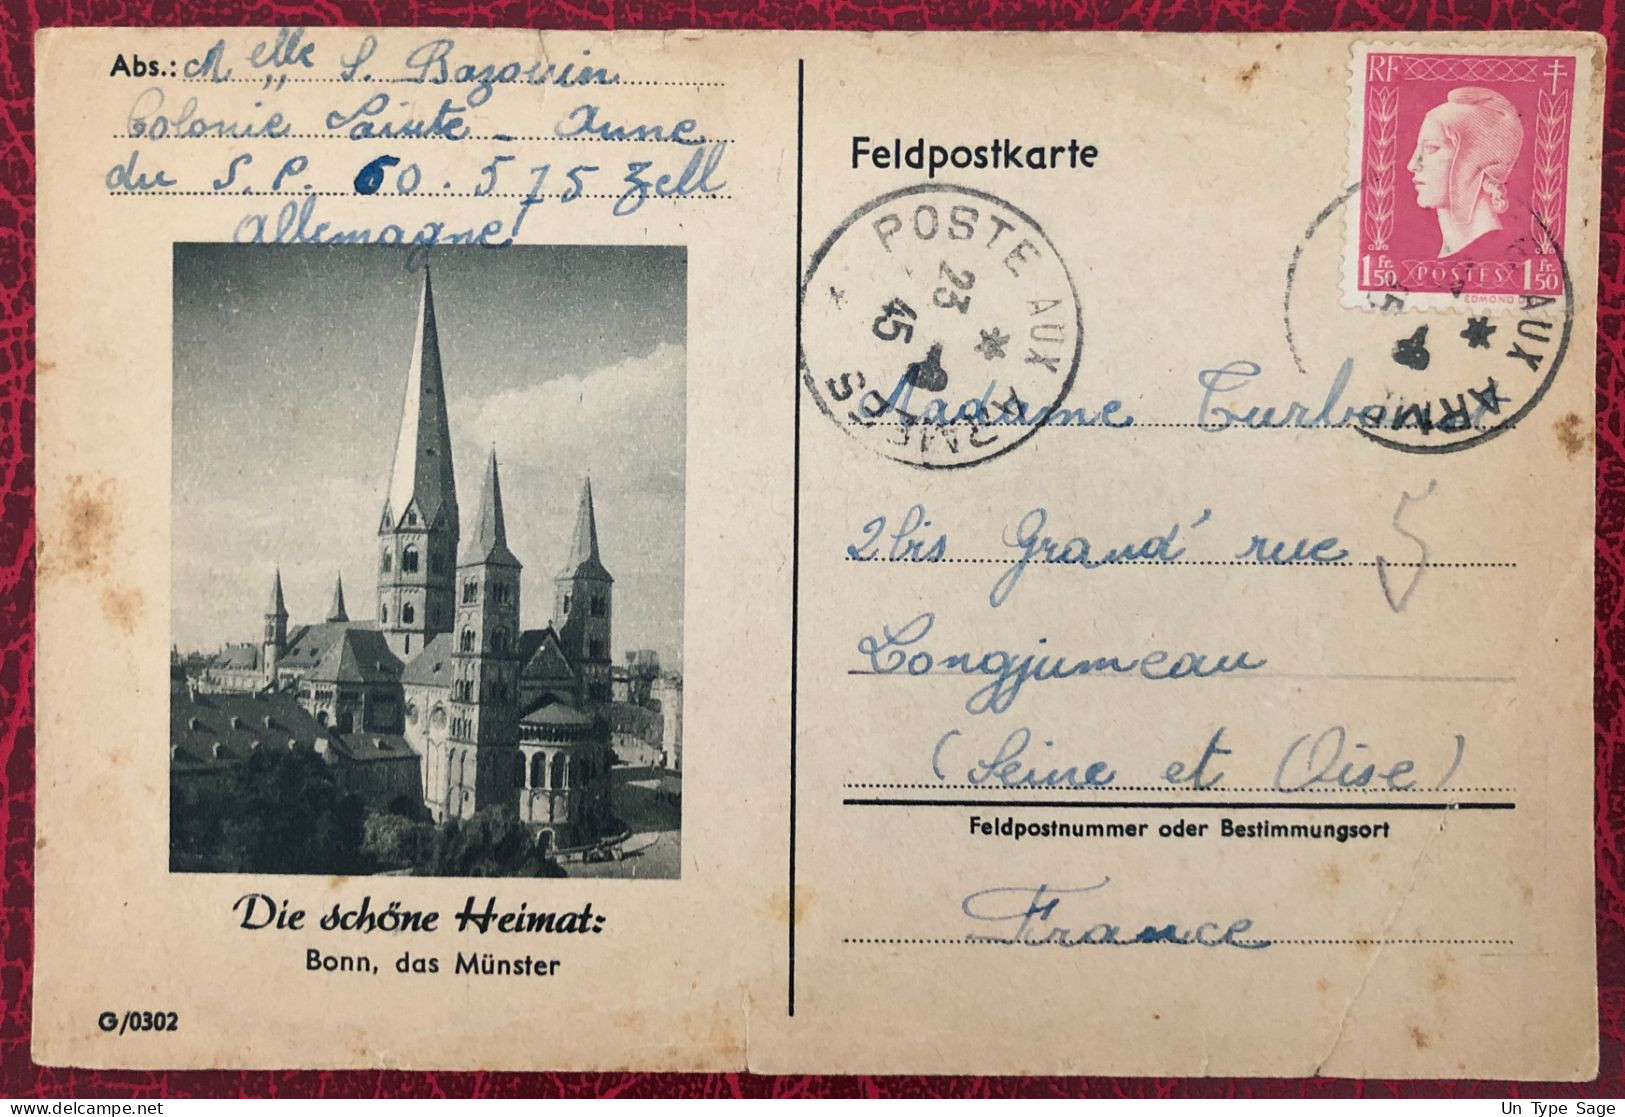 Abs.: Melle S. Bazouin
Colonie Sainte - Anne
du S.P. 60.575 Zell
Allemagne
Die schöne Heimat:
Bonn, das Münster
G/0302
Feldpostkarte
RF
1 Fr. 50 POSTES 1 Fr. 50
EDMOND D
POSTE AUX ARMEES
23
45
AUX ARM
45
Madame
2bis Grand' rue
5
Longjumeau
(Seine et Oise)
Feldpostnummer oder Bestimmungsort
France
Un Type Sage